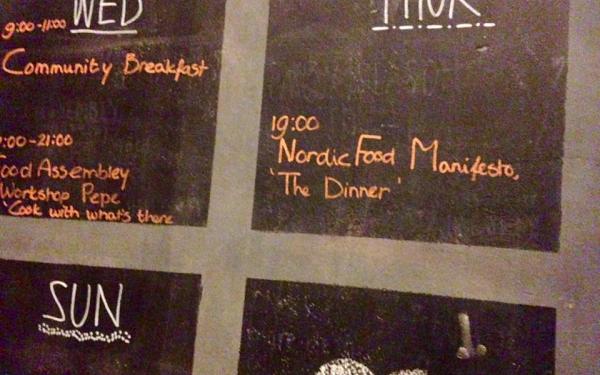 WED
9:00-11:00
Community Breakfast
:00-21:00
ood Assembley
Workshop Pepe
'Cook with what's there
THUR
19:00
Nordic Food Manifesto,
'The Dinner'
SUN